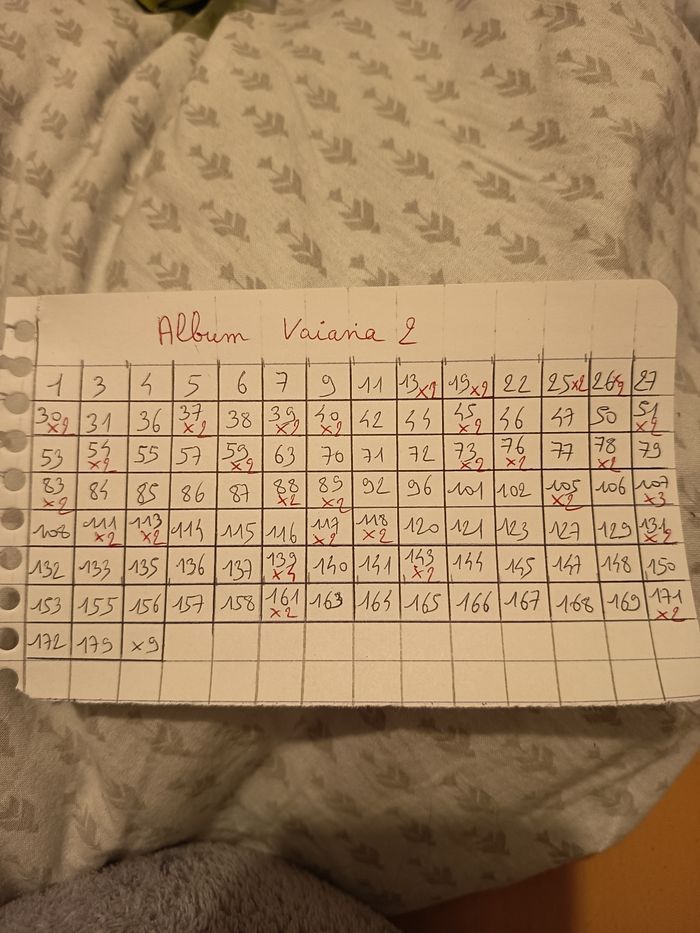 Album Vaiana 2
1 3 4 5 6 7 9 11 13 x2 19 x2 22 25 x2 26 x2 27
30 x2 31 36 37 x2 38 39 x2 40 x2 42 44 45 x2 46 47 50 51 x2
53 54 x2 55 57 59 x2 63 70 71 72 73 x2 76 x2 77 78 x2 79
83 x2 84 85 86 87 88 x2 89 x2 92 96 101 102 105 x2 106 107 x3
108 111 x2 113 x2 114 115 116 117 x2 118 x2 120 121 123 127 129 131 x2
132 133 135 136 137 139 x4 140 141 143 x2 144 145 147 148 150
153 155 156 157 158 161 x2 163 164 165 166 167 168 169 171 x2
172 179 x9